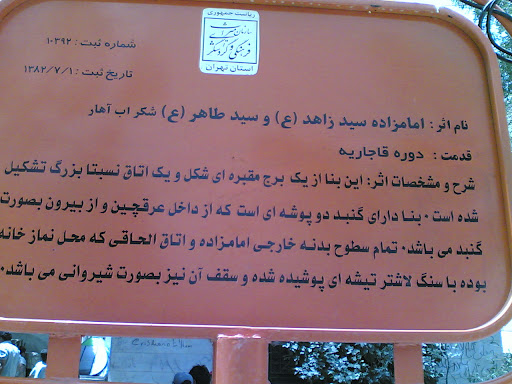 ریاست جمهوری
سازمان میراث
فرهنگی و گردشگری
استان تهران
شماره ثبت : ۱۰۳۹۲
تاریخ ثبت : ۱۳۸۲/۷/۱
نام اثر : امامزاده سید زاهد (ع) و سید طاهر (ع) شکر اب آهار
قدمت : دوره قاجاریه
شرح و مشخصات اثر: این بنا از یک برج مقبره ای شکل و یک اتاق نسبتا بزرگ تشکیل
شده است ۰ بنا دارای گنبد دو پوشه ای است که از داخل عرقچین و از بیرون بصورت
گنبد می باشد۰ تمام سطوح بدنه خارجی امامزاده و اتاق الحاقی که محل نماز خانه
بوده با سنگ لاشتر تیشه ای پوشیده شده و سقف آن نیز بصورت شیروانی می باشد۰